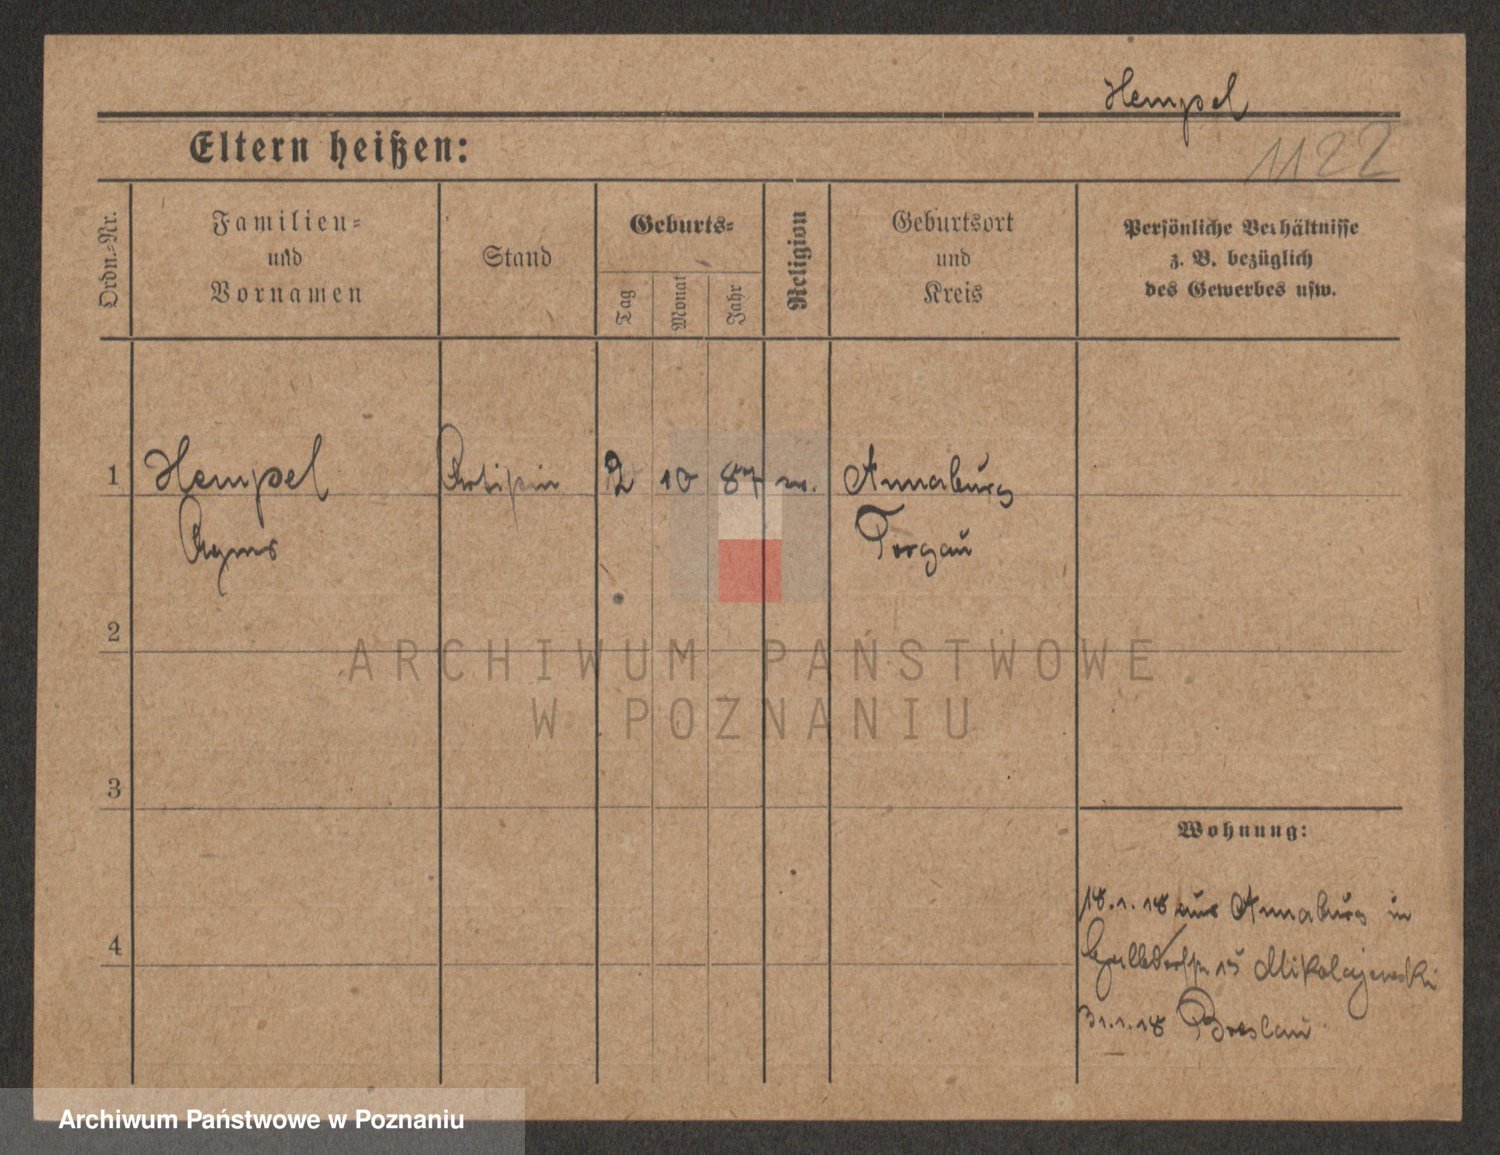 Hempel
Eltern heißen:
1122
Ordn.-Nr.
Familien-
und
Vornamen
Stand
Geburts-
Tag
Monat
Jahr
Religion
Geburtsort
und
Kreis
Persönliche Verhältnisse
z. B. bezüglich
des Gewerbes usw.
1
Hempel
Artistin
2
10
87
Annaburg
Agnes
Torgau
2
3
4
Wohnung:
18.1.18 aus Annaburg in
15 Mikolajewski
31.1.18 Breslau
ARCHIWUM PAŃSTWOWE
W POZNANIU
Archiwum Państwowe w Poznaniu